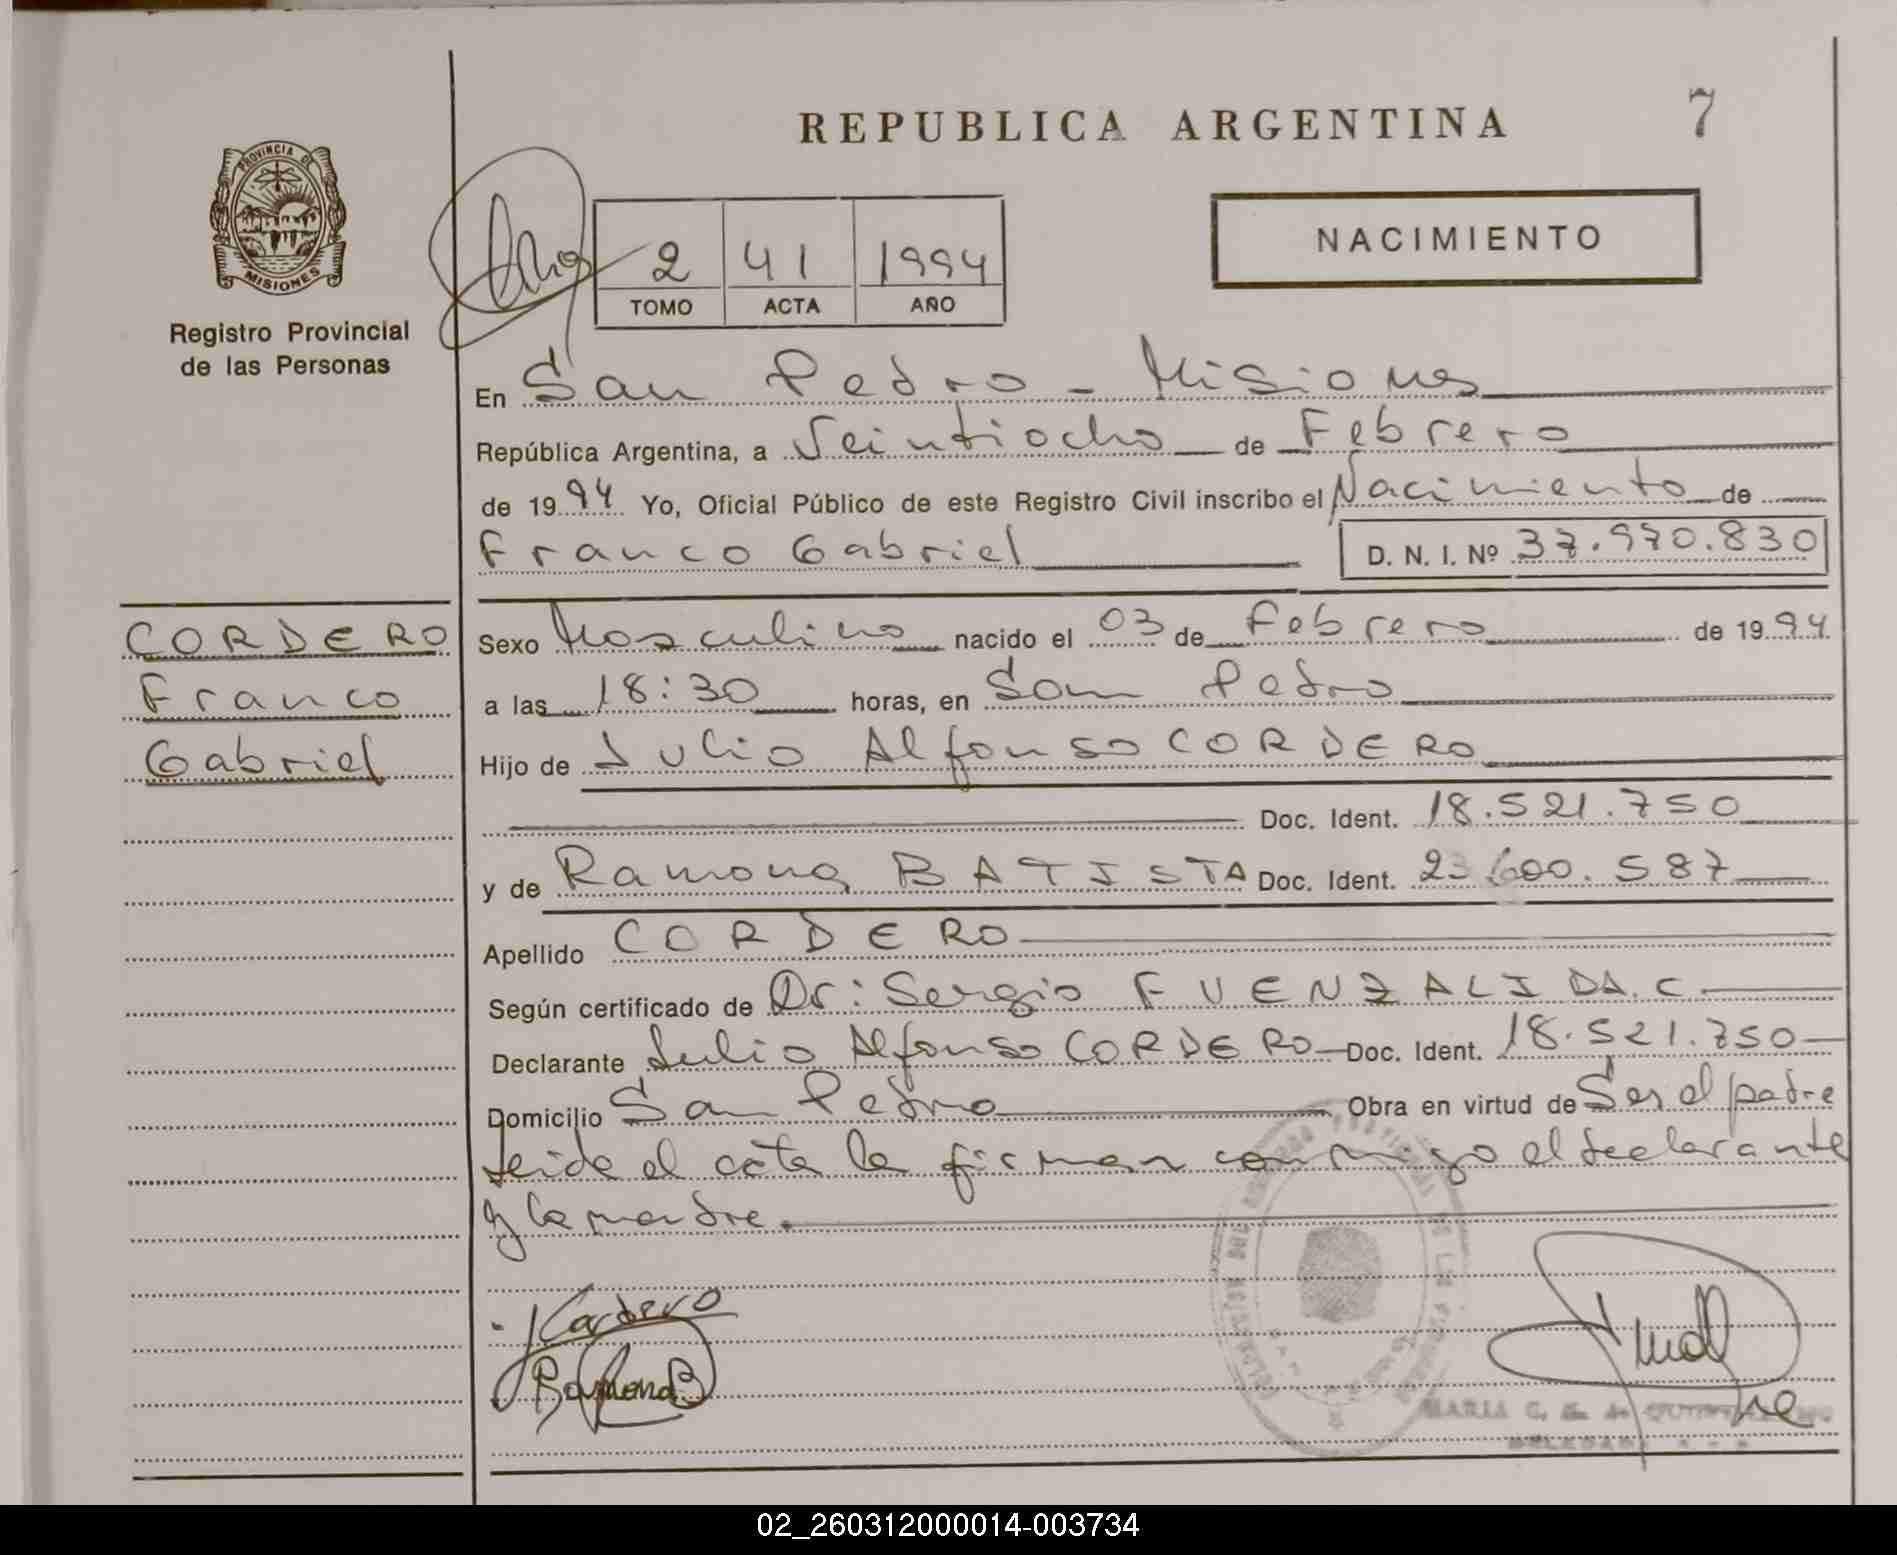 REPUBLICA ARGENTINA
7
PROVINCIA DE
MISIONES
Registro Provincial
de las Personas
2 41 1994
TOMO ACTA AÑO
NACIMIENTO
En San Pedro - Misiones
República Argentina, a Veintiocho de Febrero
de 1994 Yo, Oficial Público de este Registro Civil inscribo el Nacimiento de
Franco Gabriel
D. N. I. Nº 37.970.830
CORDERO
Franco
Gabriel
Sexo Masculino nacido el 03 de Febrero de 1994
a las 18:30 horas, en San Pedro
Hijo de Julio Alfonso CORDERO
Doc. Ident. 18.521.750
y de Ramona BATISTA Doc. Ident. 23.600.587
Apellido CORDERO
Según certificado de Dr: Sergio FUENZALIDA. C.
Declarante Julio Alfonso CORDERO Doc. Ident. 18.521.750
Domicilio San Pedro Obra en virtud de Ser el padre
Leida el acta la firman conmigo el declarante
y la madre.
Cordero
Ramona B
MARIA C.
02_260312000014-003734